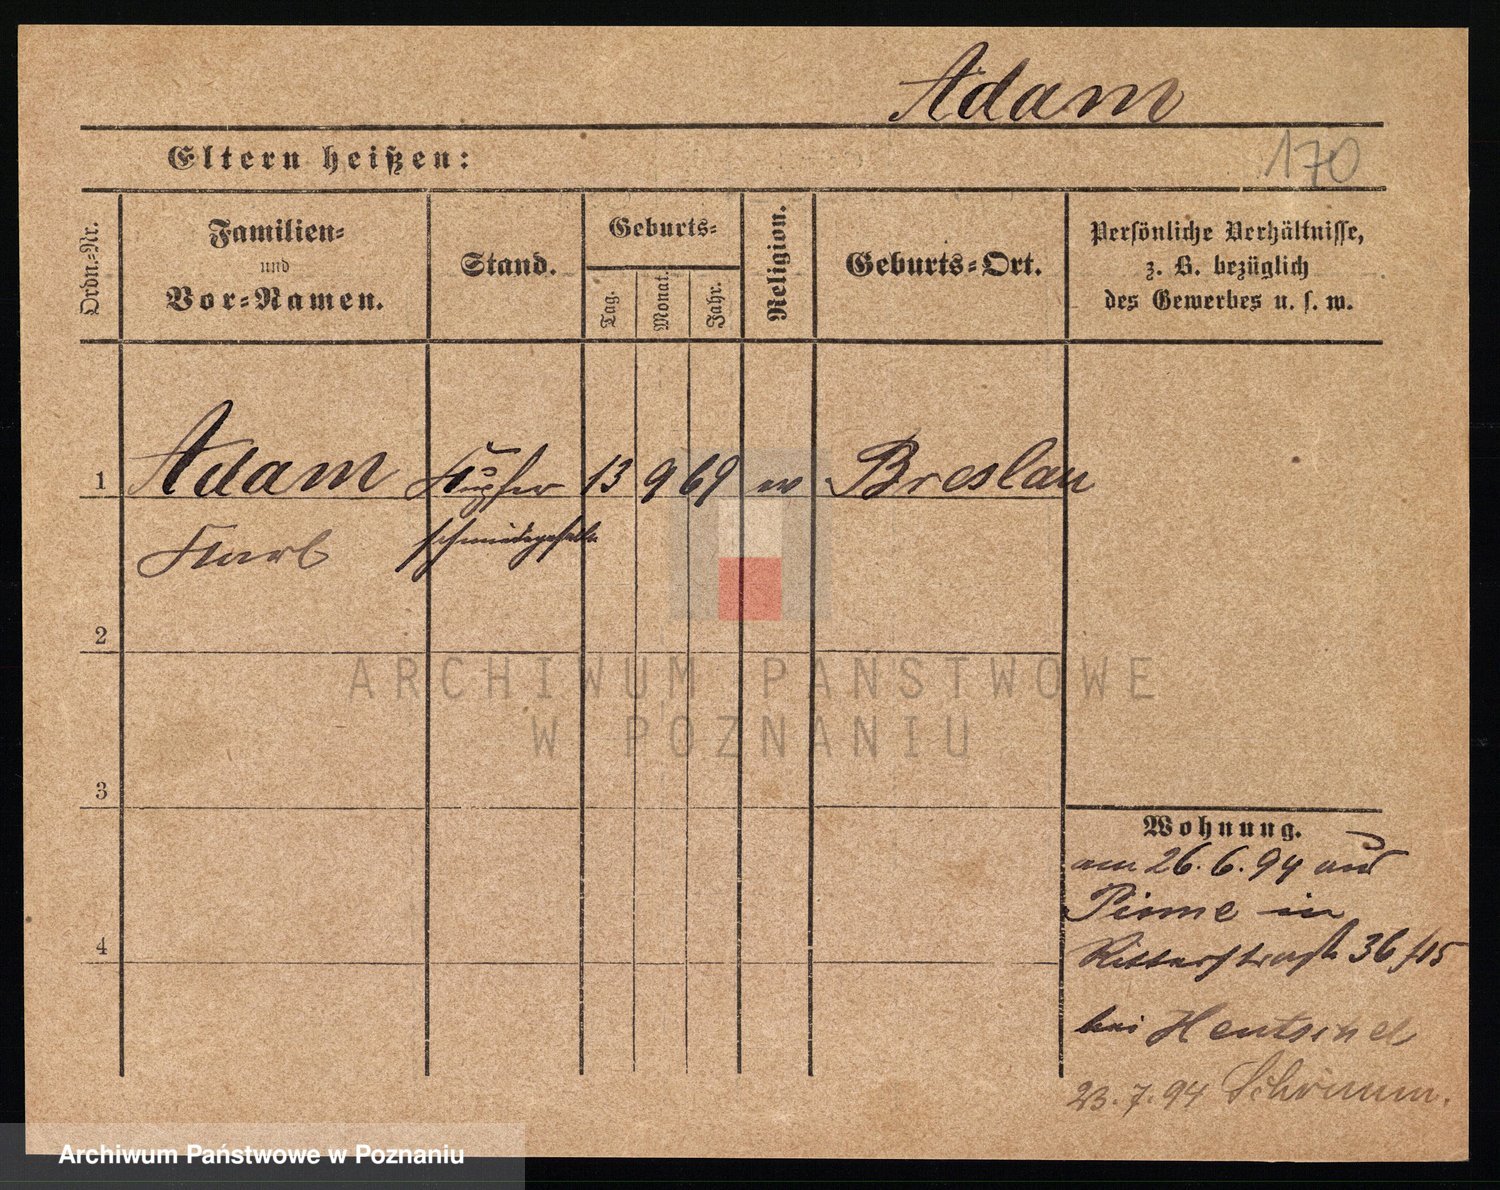 Adam
Eltern heißen:
170
Ordn.-Nr.
Familien-
und
Vor-Namen.
Stand.
Geburts-
Tag.
Monat.
Jahr.
Religion.
Geburts-Ort.
Persönliche Verhältnisse,
z. B. bezüglich
des Gewerbes u. s. w.
1 Adam Kupfer 13 9 69 ev Breslau
Karl schmiedegeselle
2
3
4
Wohnung.
am 26.6.94 aus
Pinne in
Ritterstraße 36
bei
23.7.94 Schrimm.
ARCHIWUM PAŃSTWOWE
W POZNANIU
Archiwum Państwowe w Poznaniu